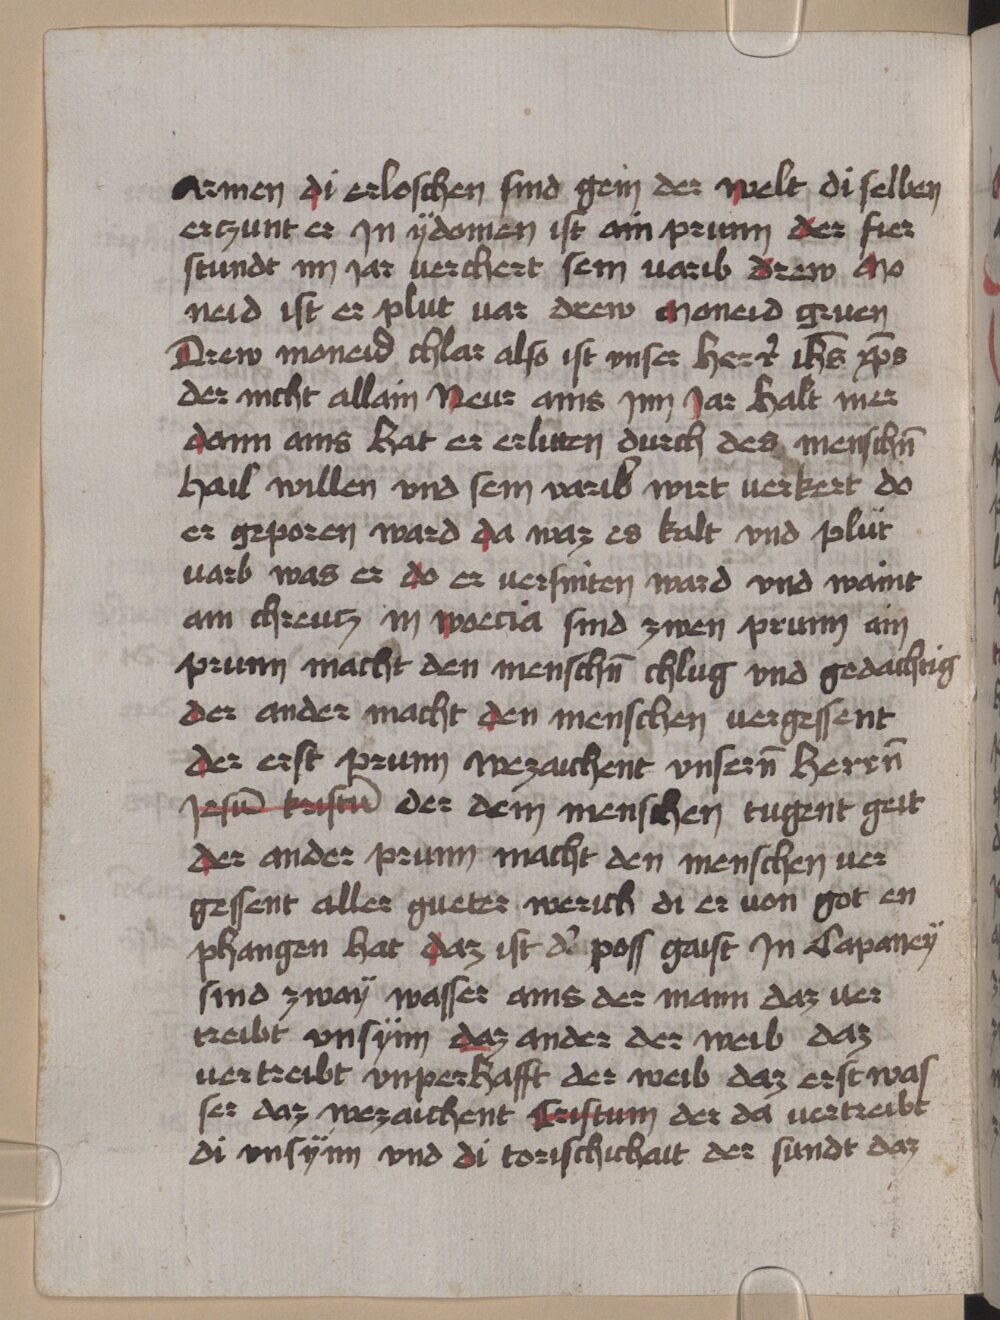 Armen di erloschen sind gein der welt di selben
erczunt er In ÿdomen ist ain prunn der fier
stundt im Jar verchert sein varib drew Mo
neid ist er plut var drew Moneid gruen
Drew moneid chlar also ist vnser herr̄ ih̄s xp̄s
der nicht allain Neur ains Jnn Jar halt mer
dann ains hat er erluten durch des menschn̄
hail willen vnd sein varib wirt verkert do
er geporen ward da waz es kalt vnd plüt
varb was er do er versniten ward vnd waint
am chreutz in woecia sind zwen prunn ain
prunn macht den menschn̄ chlug vnd gedachtig
der ander macht den menschen vergessent
der erst prunn wezaichent vnsern̄ herrn̄
Jesū kristū der dem menschen tugent geit
der ander prunn macht den menschen ver
gessent aller gueter werich di er von got en
phangen hat daz ist d' poss gaist In Capaneÿ
sind zwaÿ wasser ains der mann daz ver
treibt vnsÿnn daz ander der weib daz
vertreibt vnperhafft der weib daz erst was
ser daz wezaichent Cristum der da vertreibt
di vnsÿnn vnd di torischichait der sundt daz